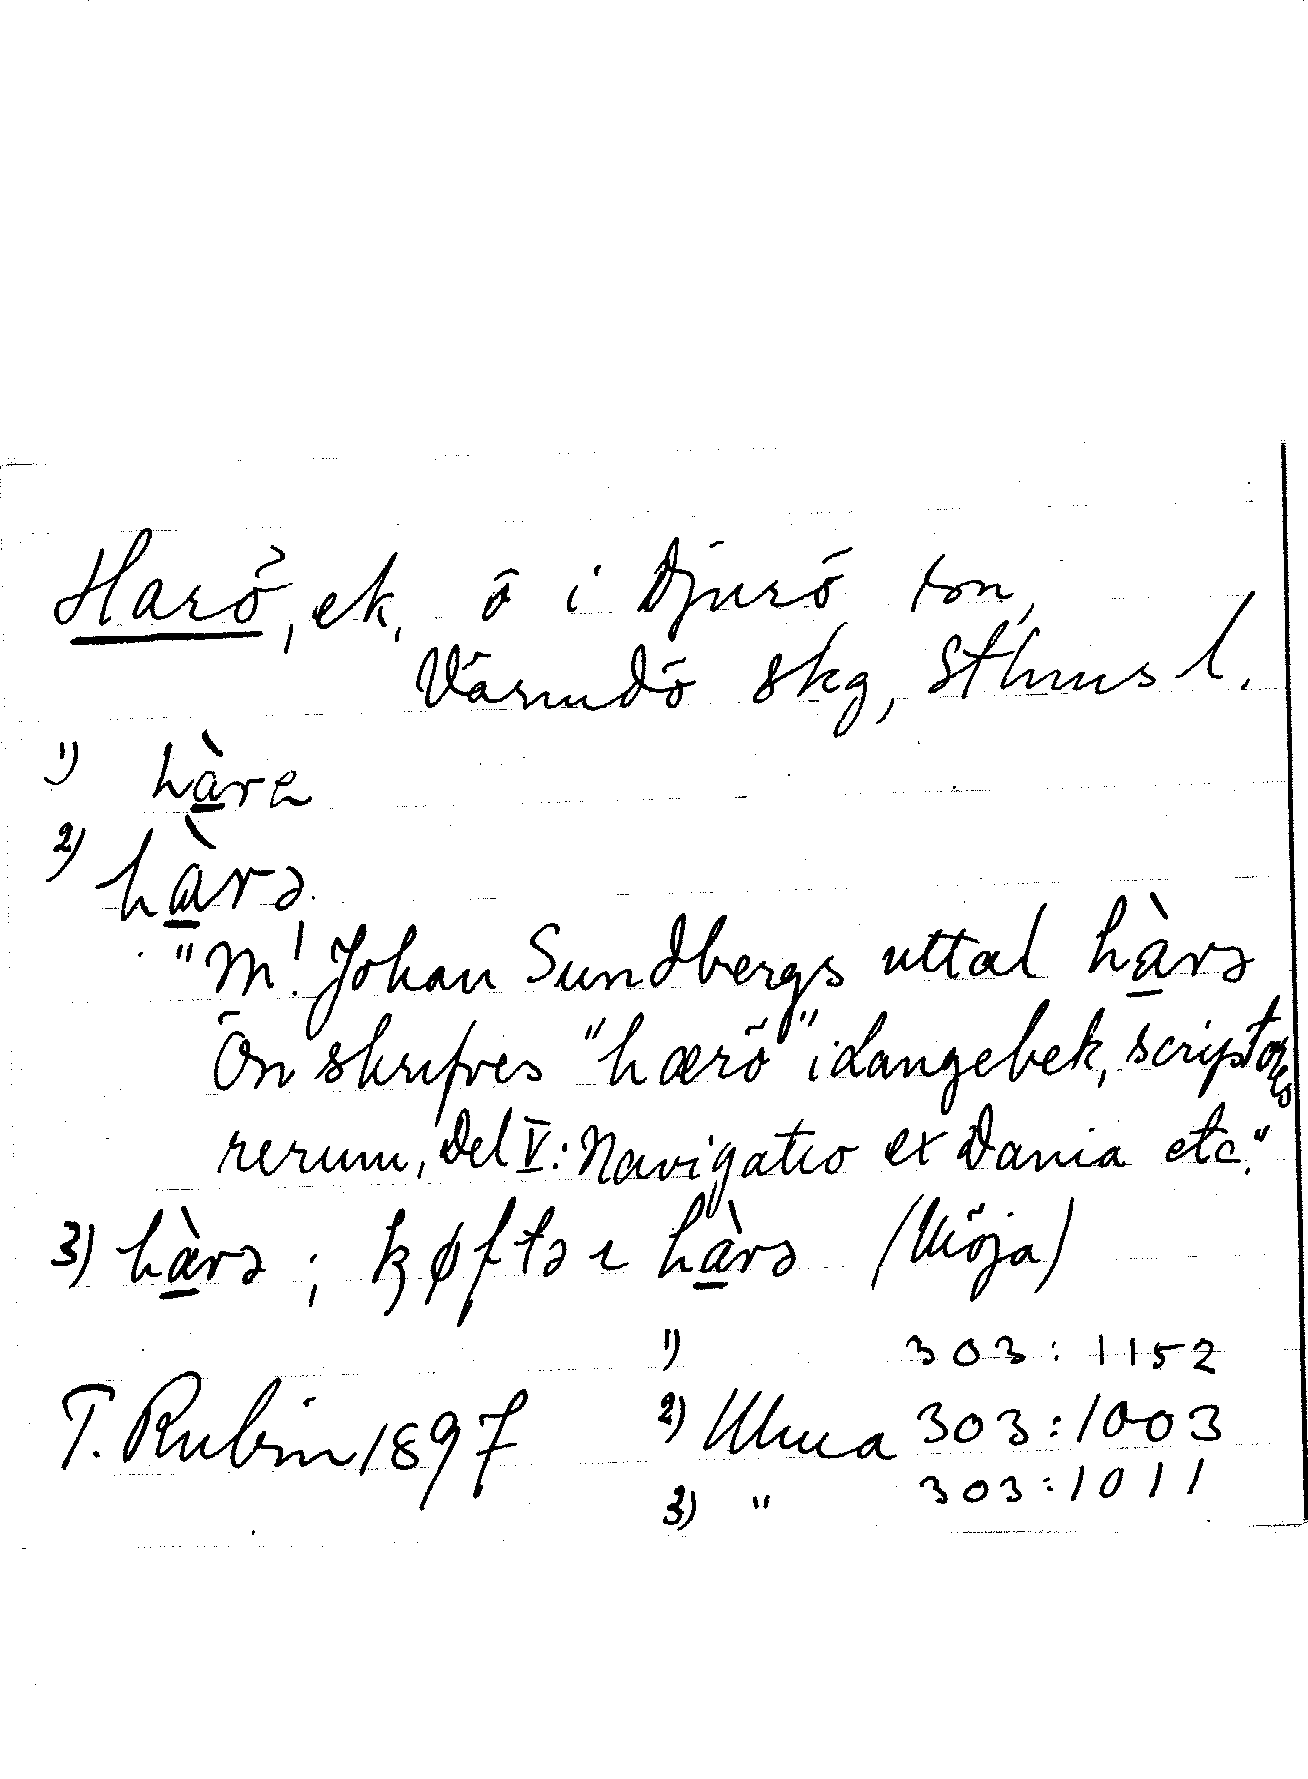 Harö, ek. ö i Djurö sn,
Värmdö skg, Sthms l.
1) hàre
2) hàrə
"M! Johan Sundbergs uttal hàrə
Ön skrifves "hærö" i Langebek, scriptores
rerum, Del V: Navigatio ex Dania etc."
3) hàrə ; køftə ɩ hàrə (Möja)
1) 303:1152
T. Rubin 1897 2) Ulma 303:1003
3) " 303:1011